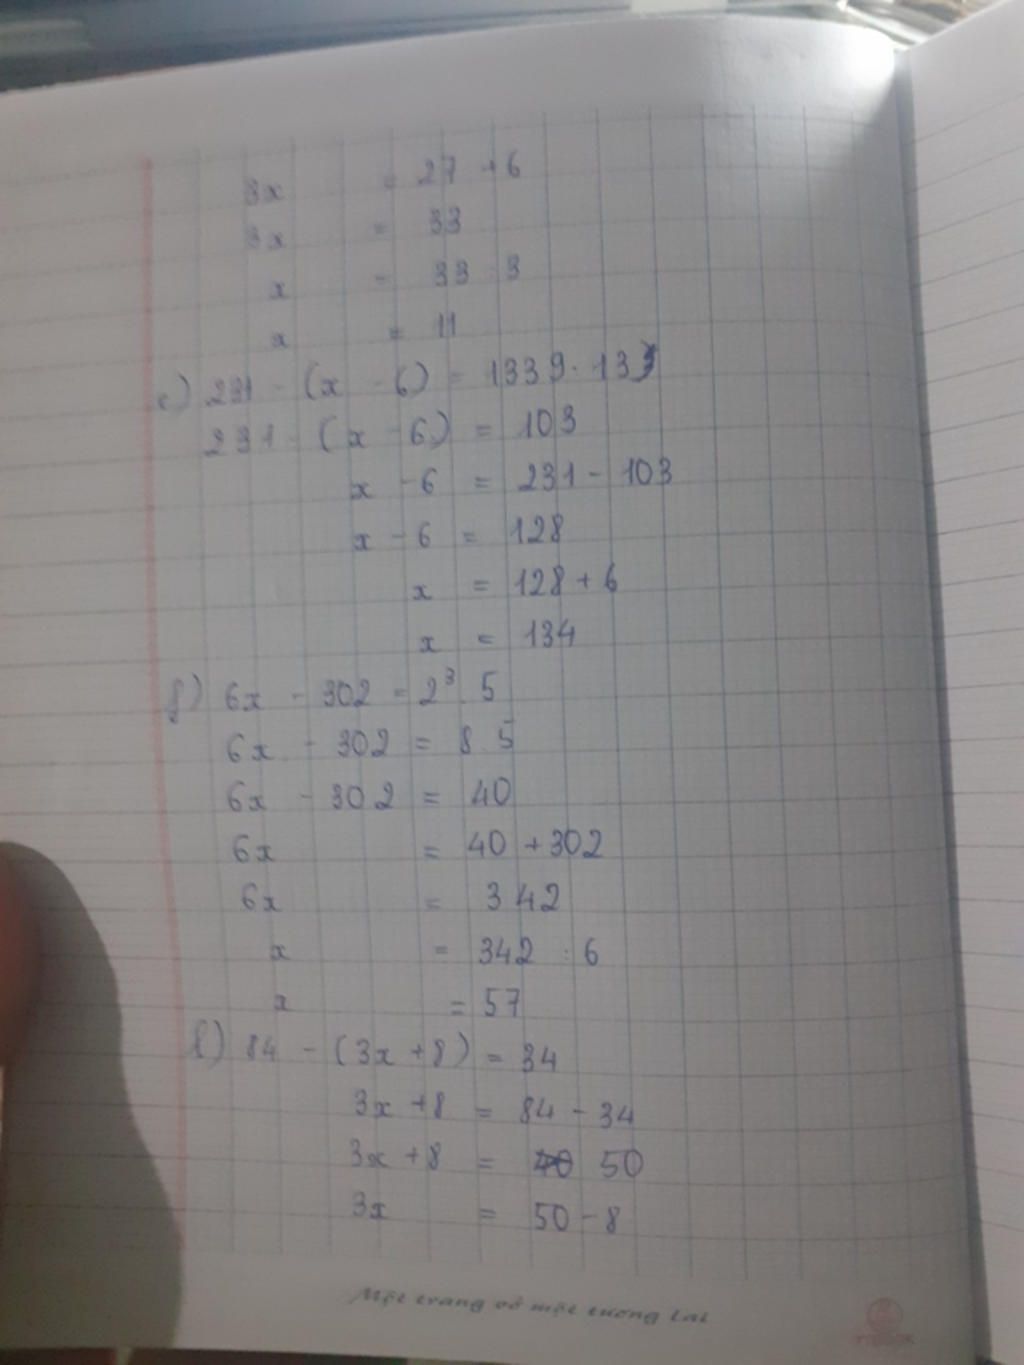 3x = 27 + 6
3x = 33
x = 33 : 3
x = 11
c) 231 - (x - 6) = 1339 : 13
231 - (x - 6) = 103
x - 6 = 231 - 103
x - 6 = 128
x = 128 + 6
x = 134
f) 6x - 302 = 2³ . 5
6x - 302 = 8 . 5
6x - 302 = 40
6x = 40 + 302
6x = 342
x = 342 : 6
x = 57
b) 84 - (3x + 8) = 34
3x + 8 = 84 - 34
3x + 8 = 50
3x = 50 - 8
Một trang vở một tương lai